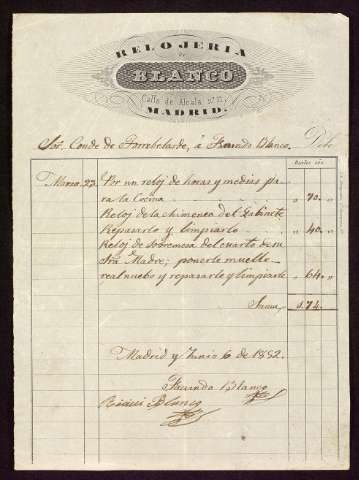 RELOJERIA
de
BLANCO
Calle de Alcala nº 17
MADRID.
Sor. Conde de Torrebelarde, á Facundo Blanco. Debe
Reales vón.
Marzo. 23. Por un reloj de horas y medias pa-
ra la Cocina " 70. "
Reloj de la chimenea del Gabinete
Repararlo y limpiarlo " 40. "
Reloj de sovremesa del cuarto de su
Sra Madre; ponerle muelle
real nuebo y repararle y limpiarle " 64. "
Suma, 174. "
Madrid y Junio 6 de 1852.
Facundo Blanco
Recivi Blanco